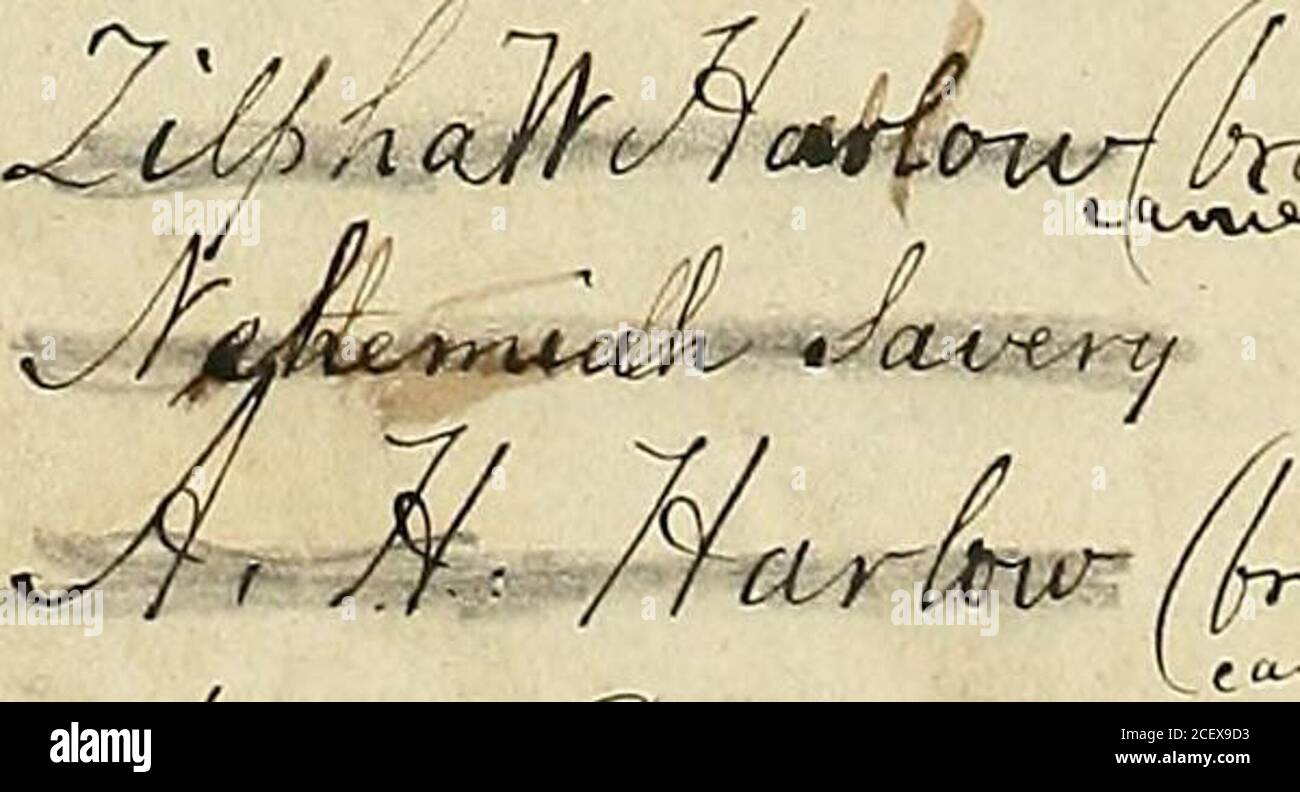 Zilpha W Harlow (br
came
Nehemiah Savery
A. H. Harlow (br
ca
alamy
Image ID: 2CEX9D3
www.alamy.com